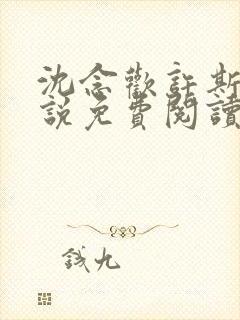 沈念歡許斯
說免費閱讀
錢九